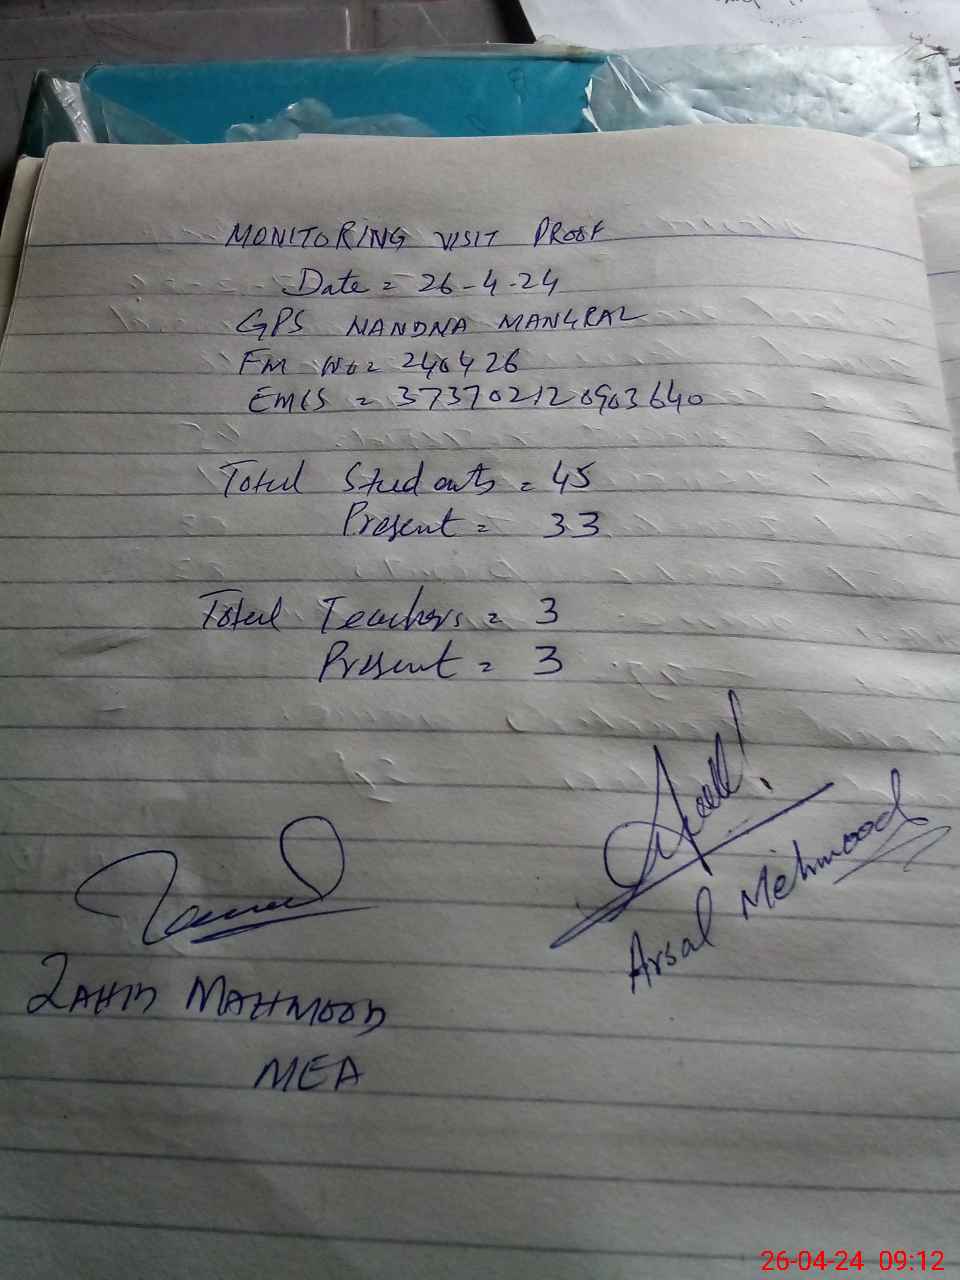 MONITORING VISIT PROOF
Date = 26-4-24
GPS NANDNA MANGRAL
FM No = 240426
EMIS = 373702120903640
Total Students = 45
Present = 33
Total Teachers = 3
Present = 3
Arsal Mehmood
ZAHID MAHMOOD
MEA
26-04-24 09:12